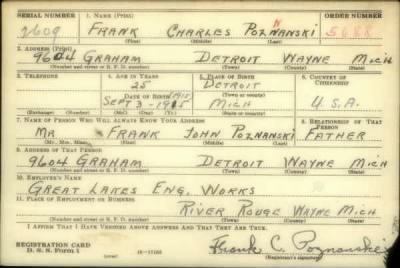 SERIAL NUMBER 1. NAME (Print) ORDER NUMBER
2609 FRANK CHARLES POZNANSKI 5688
(First) (Middle) (Last)
2. ADDRESS (Print)
9604 GRAHAM DETROIT WAYNE MICH
(Number and street or R. F. D. number) (Town) (County) (State)
3. TELEPHONE 4. AGE IN YEARS 5. PLACE OF BIRTH 6. COUNTRY OF CITIZENSHIP
25 DETROIT
DATE OF BIRTH (Town or county)
1915
SEPT 3-1915 MICH U.S.A.
(Exchange) (Number) (Mo.) (Day) (Yr.) (State or country)
7. NAME OF PERSON WHO WILL ALWAYS KNOW YOUR ADDRESS 8. RELATIONSHIP OF THAT PERSON
MR FRANK JOHN POZNANSKI FATHER
(Mr., Mrs., Miss) (First) (Middle) (Last)
9. ADDRESS OF THAT PERSON
9604 GRAHAM DETROIT WAYNE MICH
(Number and street or R. F. D. number) (Town) (County) (State)
10. EMPLOYER'S NAME
GREAT LAKES ENG. WORKS
11. PLACE OF EMPLOYMENT OR BUSINESS
RIVER ROUGE WAYNE MICH
(Number and street or R. F. D. number) (Town) (County) (State)
I AFFIRM THAT I HAVE VERIFIED ABOVE ANSWERS AND THAT THEY ARE TRUE.
REGISTRATION CARD
D. S. S. Form 1 Frank C. Poznanski
(over) (Registrant's signature)